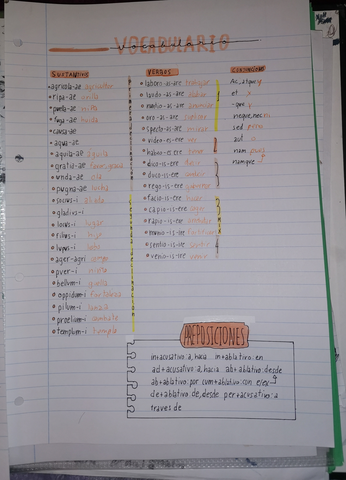 VOCABULARIO
SUSTANTIVO
agricola-ae agricultor
ripa-ae orilla
puella-ae niña
fuga-ae huida
causa-ae
aqua-ae
aquila-ae águila
gratia-ae
unda-ae ola
pugna-ae lucha
socius-i aliado
gladius-i
locus-i lugar
filius-i hijo
lupus-i lobo
ager-agri
puer-i
bellum-i guerra
oppidum-i
pilum-i lanza
proelium-i combate
templum-i templo
VERBOS
laboro-as-are trabajar
ludo-as-are
nuntio-as-are anunciar
oro-as-are
specto-as-are mirar
video-es-ere ver
habeo-es-ere tener
dico-is-ere decir
duco-is-ere
rego-is-ere
facio-is-ere hacer
capio-is-ere
rapio-is-ere
munio-is-ire
sentio-is-ire sentir
venio-is-ire venir
Ac, atque y
et y
-que y
neque, nec ni
sed pero
aut o
nam pues
namque
PREPOSICIONES
in+acusativo: a, hacia in+ablativo: en
ad+acusativo: a, hacia ab+ablativo: desde
ab+ablativo: por cum+ablativo: con e/ex
de+ablativo: de, desde per+acusativo: a
traves de